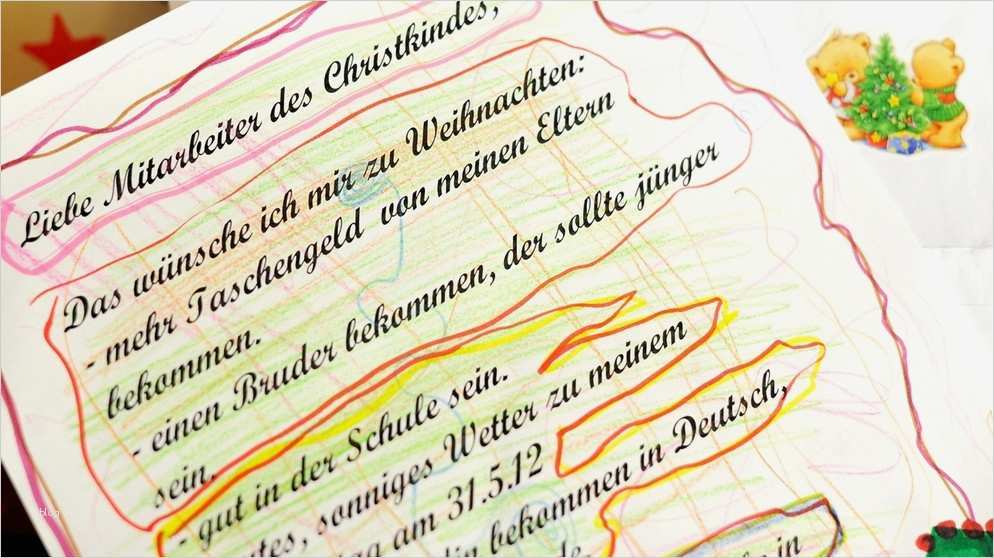 Liebe Mitarbeiter des Christkindes,
Das wünsche ich mir zu Weihnachten:
- mehr Taschengeld von meinen Eltern
bekommen.
- einen Bruder bekommen, der sollte jünger
sein.
- gut in der Schule sein.
sonniges Wetter zu meinem
am 31.5.12
bekommen in Deutsch,
blog